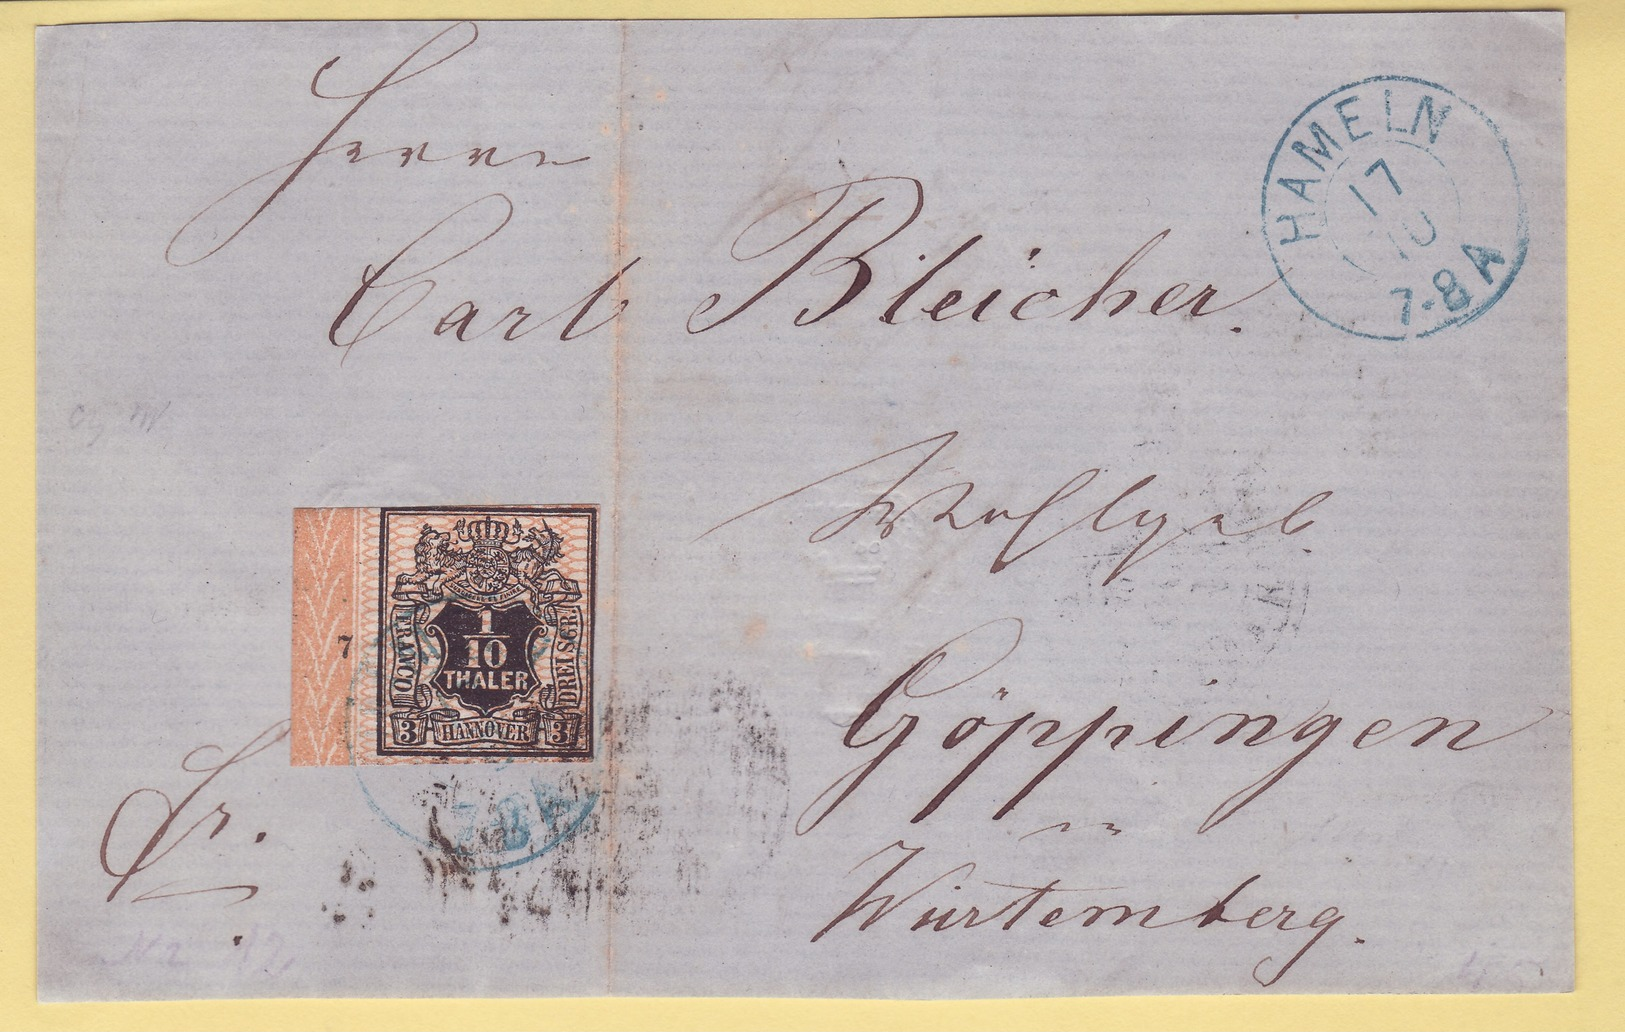 HAMELN
17
10
7-8 A
Herrn
Carl Bleicher.
Wohlgeb.
Göppingen
Würtemberg.
fr.
7
FRANCO
1
10
THALER
DREI SGR.
3 HANNOVER 3
7-8 A